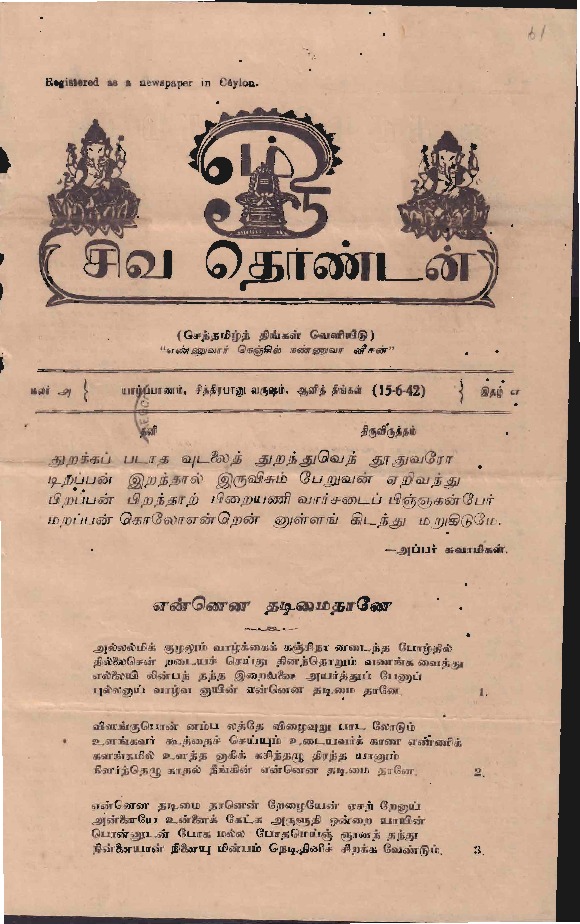 61
Registered as a newspaper in Ceylon.
ஓம்
சிவ தொண்டன்
(செந்தமிழ்த் திங்கள் வெளியீடு)
"எண்ணுவார் நெஞ்சில் நண்ணுவா னீசன்"
மலர் அ } யாழ்ப்பாணம், சித்திரபானு வருஷம், ஆனித் திங்கள் (15-6-42) } இதழ் எ
தனி திருவிருத்தம்
துறக்கப் படாத வுடலைத் துறந்துவெந் தூதுவரோ
டிறப்பன் இறந்தால் இருவிசும் பேறுவன் ஏறிவந்து
பிறப்பன் பிறந்தாற் பிறையணி வார்சடைப் பிஞ்ஞகன்பேர்
மறப்பன் கொலோஎன்றென் னுள்ளங் கிடந்து மறுகிடுமே.
—அப்பர் சுவாமிகள்.
என்னென தடிமைதானே
அல்லல்மிக் குழலும் வாழ்க்கைக் கஞ்சிநா னடைந்த போழ்தில்
தில்லைசென் றடையச் செய்து தினந்தொறும் வணங்க வைத்து
எல்லையி லின்பந் தந்த இறைவனை அயர்த்துப் பேணுப்
புல்லனாய் வாழ்வ னாயின் என்னென தடிமை தானே. 1.
விளங்குபொன் னம்ப லத்தே விழைவுறு பாட லோடும்
உளங்கவர் கூத்தைச் செய்யும் உடையவர்க் காண எண்ணிக்
களங்கமில் உளத்த னாகிக் கசிந்தழு திரந்த யானும்
கிளர்ந்தெழு காதல் நீங்கின் என்னென தடிமை தானே. 2.
என்னென தடிமை தானென் றேழையேன் ஏசற் றேனாய்
அன்னையே உன்னைக் கேட்க அருளுதி ஒன்றை யாயின்
பொன்னுடன் போக மல்ல போதமெய்ஞ் ஞானந் தந்து
நின்னையான் நினையு மின்பம் நெடிதினிச் சிறக்க வேண்டும். 3.